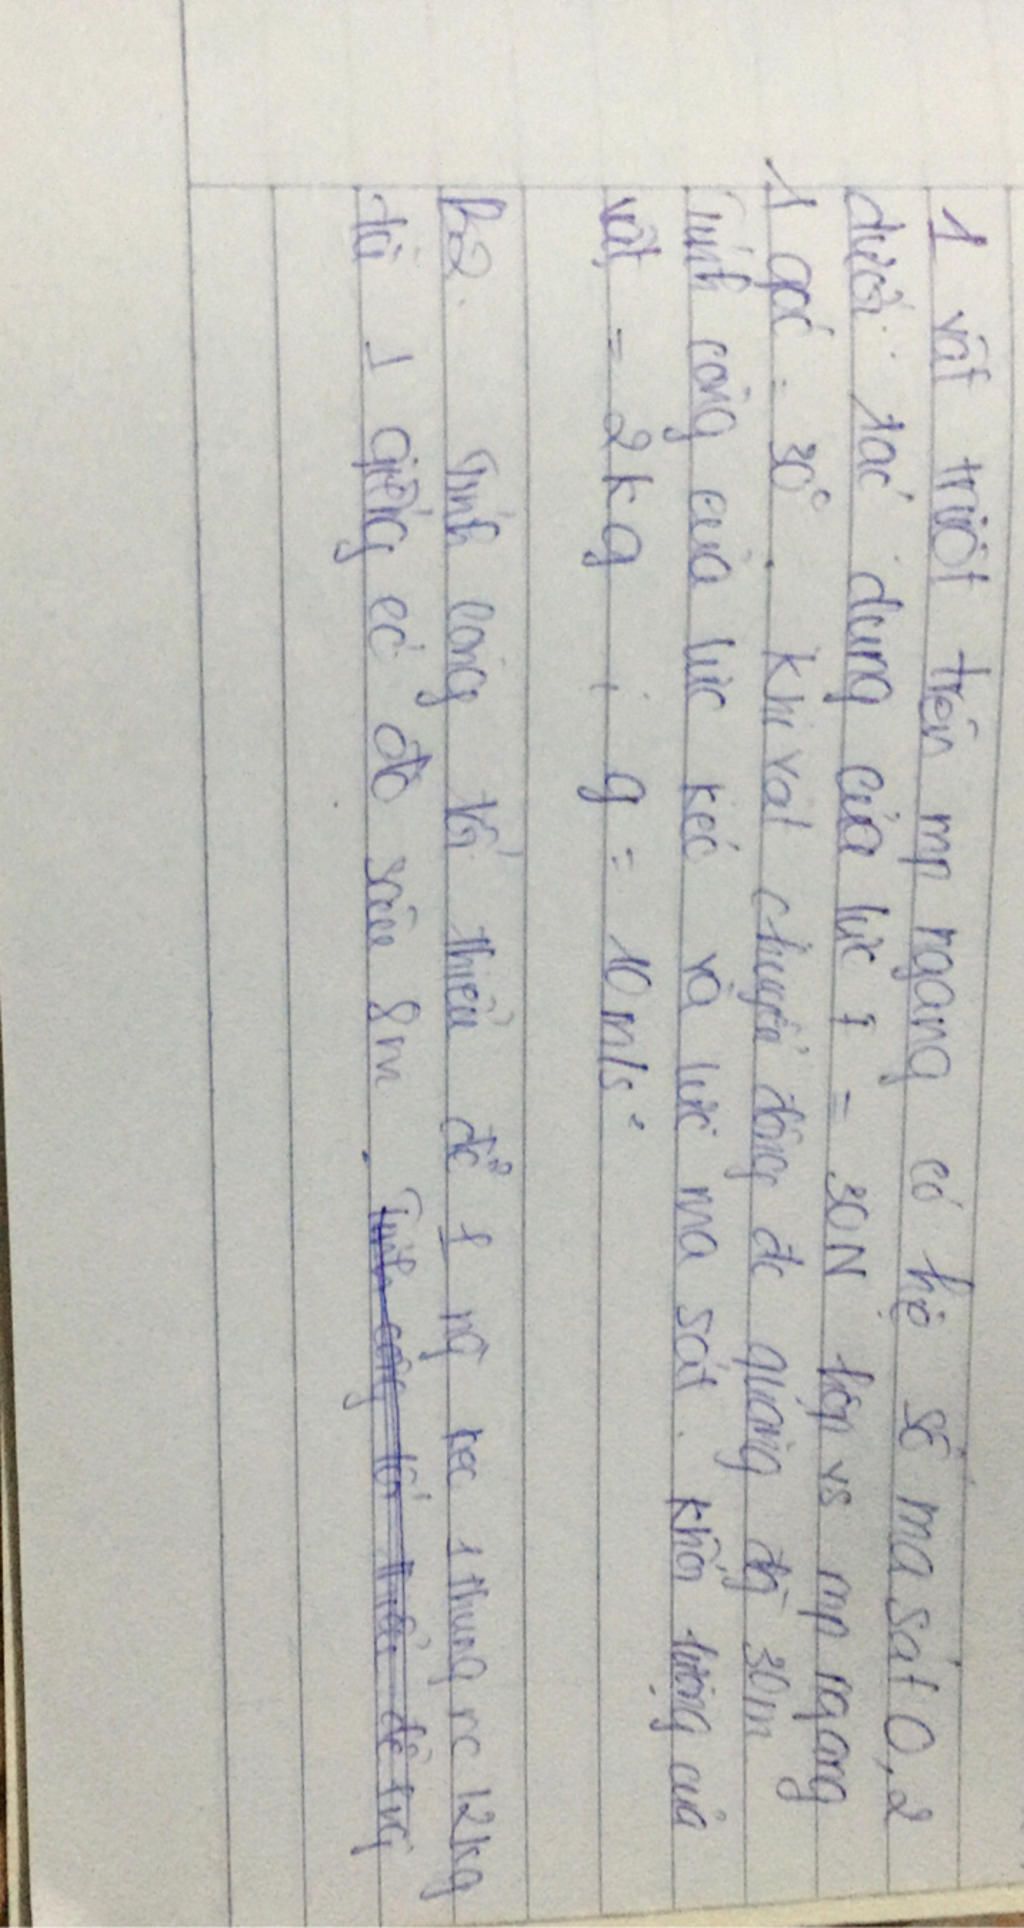 1 vật trượt trên mp ngang có hệ số ma sát 0,2
dưới tác dụng của lực F = 30N hợp vs mp ngang
1 góc = 30°. Khi vật chuyển động đc quãng đg 30m
Tính công của lực kéo và lực ma sát. Khối lượng của
vật = 2kg ; g = 10m/s²
B2. Tính công tối thiểu để 1 ng kéo 1 thùng nc 12kg
từ 1 giếng có độ sâu 8m. Tính công tối thiểu để